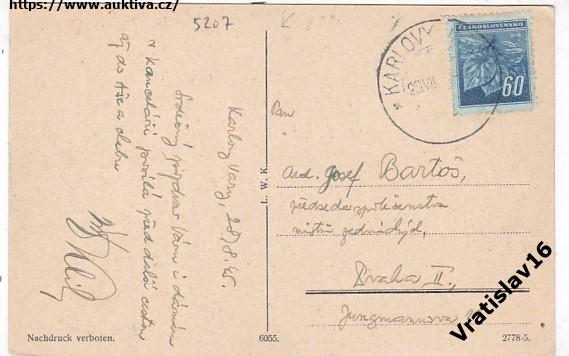 https://www.auktiva.cz/
5207
Karlovy Vary, 28/8.45.
Srdečný pozdrav Vám i dámám
v kanceláři posílá před další cestou
až do Aše a Chebu
Pan
Josef Bartoš,
předseda společenstva
mistrů
Praha II.,
Jungmannova
KARLOVY
ČESKOSLOVENSKO
60
L. W. K.
Nachdruck verboten.
6055.
2778-5.
Vratislav16